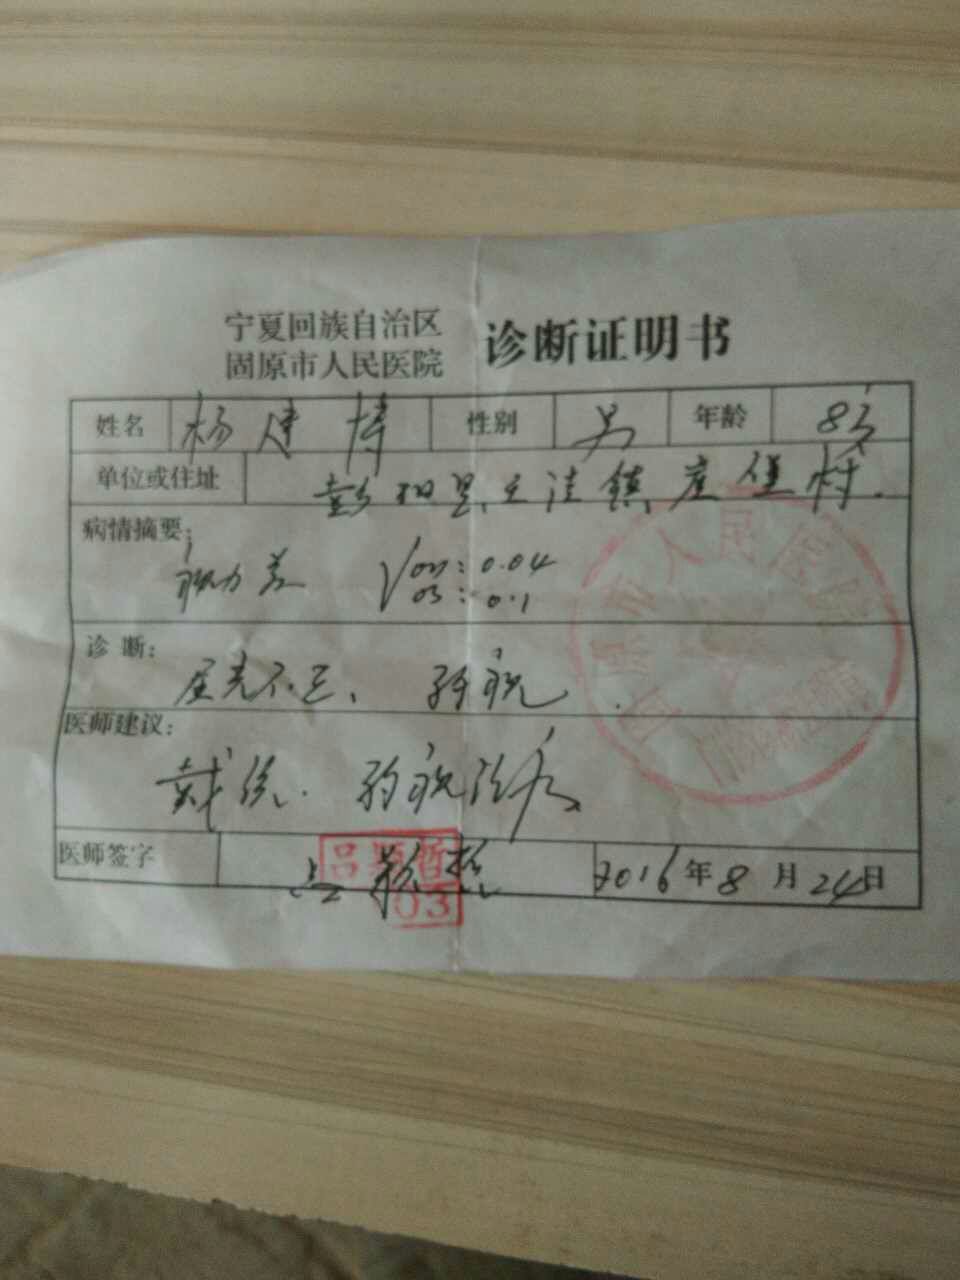 宁夏回族自治区
固原市人民医院 诊断证明书
姓名 杨建博 性别 男 年龄 8岁
单位或住址 彭阳县王洼镇崖堡村.
病情摘要:
视力差 V OD: 0.04
OS: 0.1
诊断:
屈光不正、 弱视.
医师建议:
戴镜. 弱视治疗
医师签字 吕颖哲 2016年8月24日
吕颖哲
03
固原市人民医院